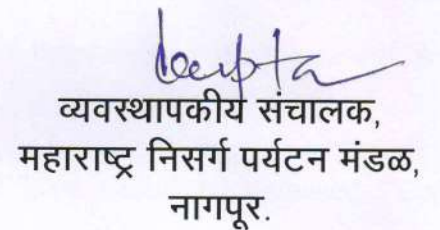 व्यवस्थापकीय संचालक,
महाराष्ट्र निसर्ग पर्यटन मंडळ,
नागपूर.